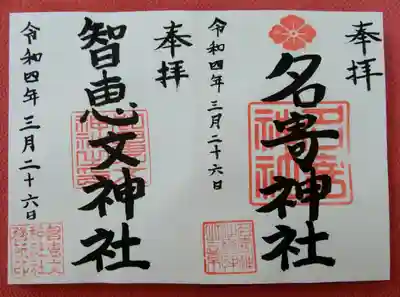 奉拝
名寄神社
令和四年三月二十六日
奉拝
智恵文神社
令和四年三月二十六日